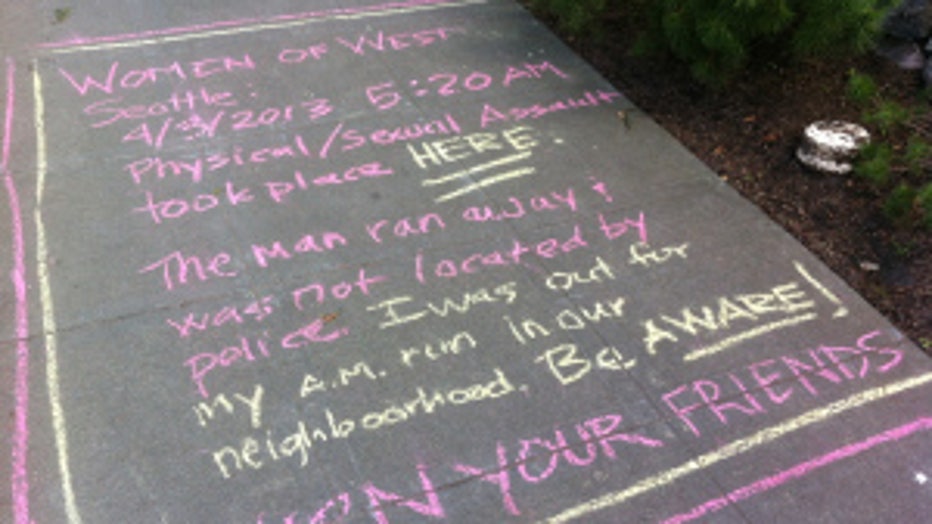 WOMEN OF WEST
Seattle:
4/3/2013 5:20 AM
Physical/Sexual Assault
took place HERE.
The man ran away &
was not located by
police. I was out for
my A.M. run in our
neighboorhood. Be AWARE!
YOUR FRIENDS